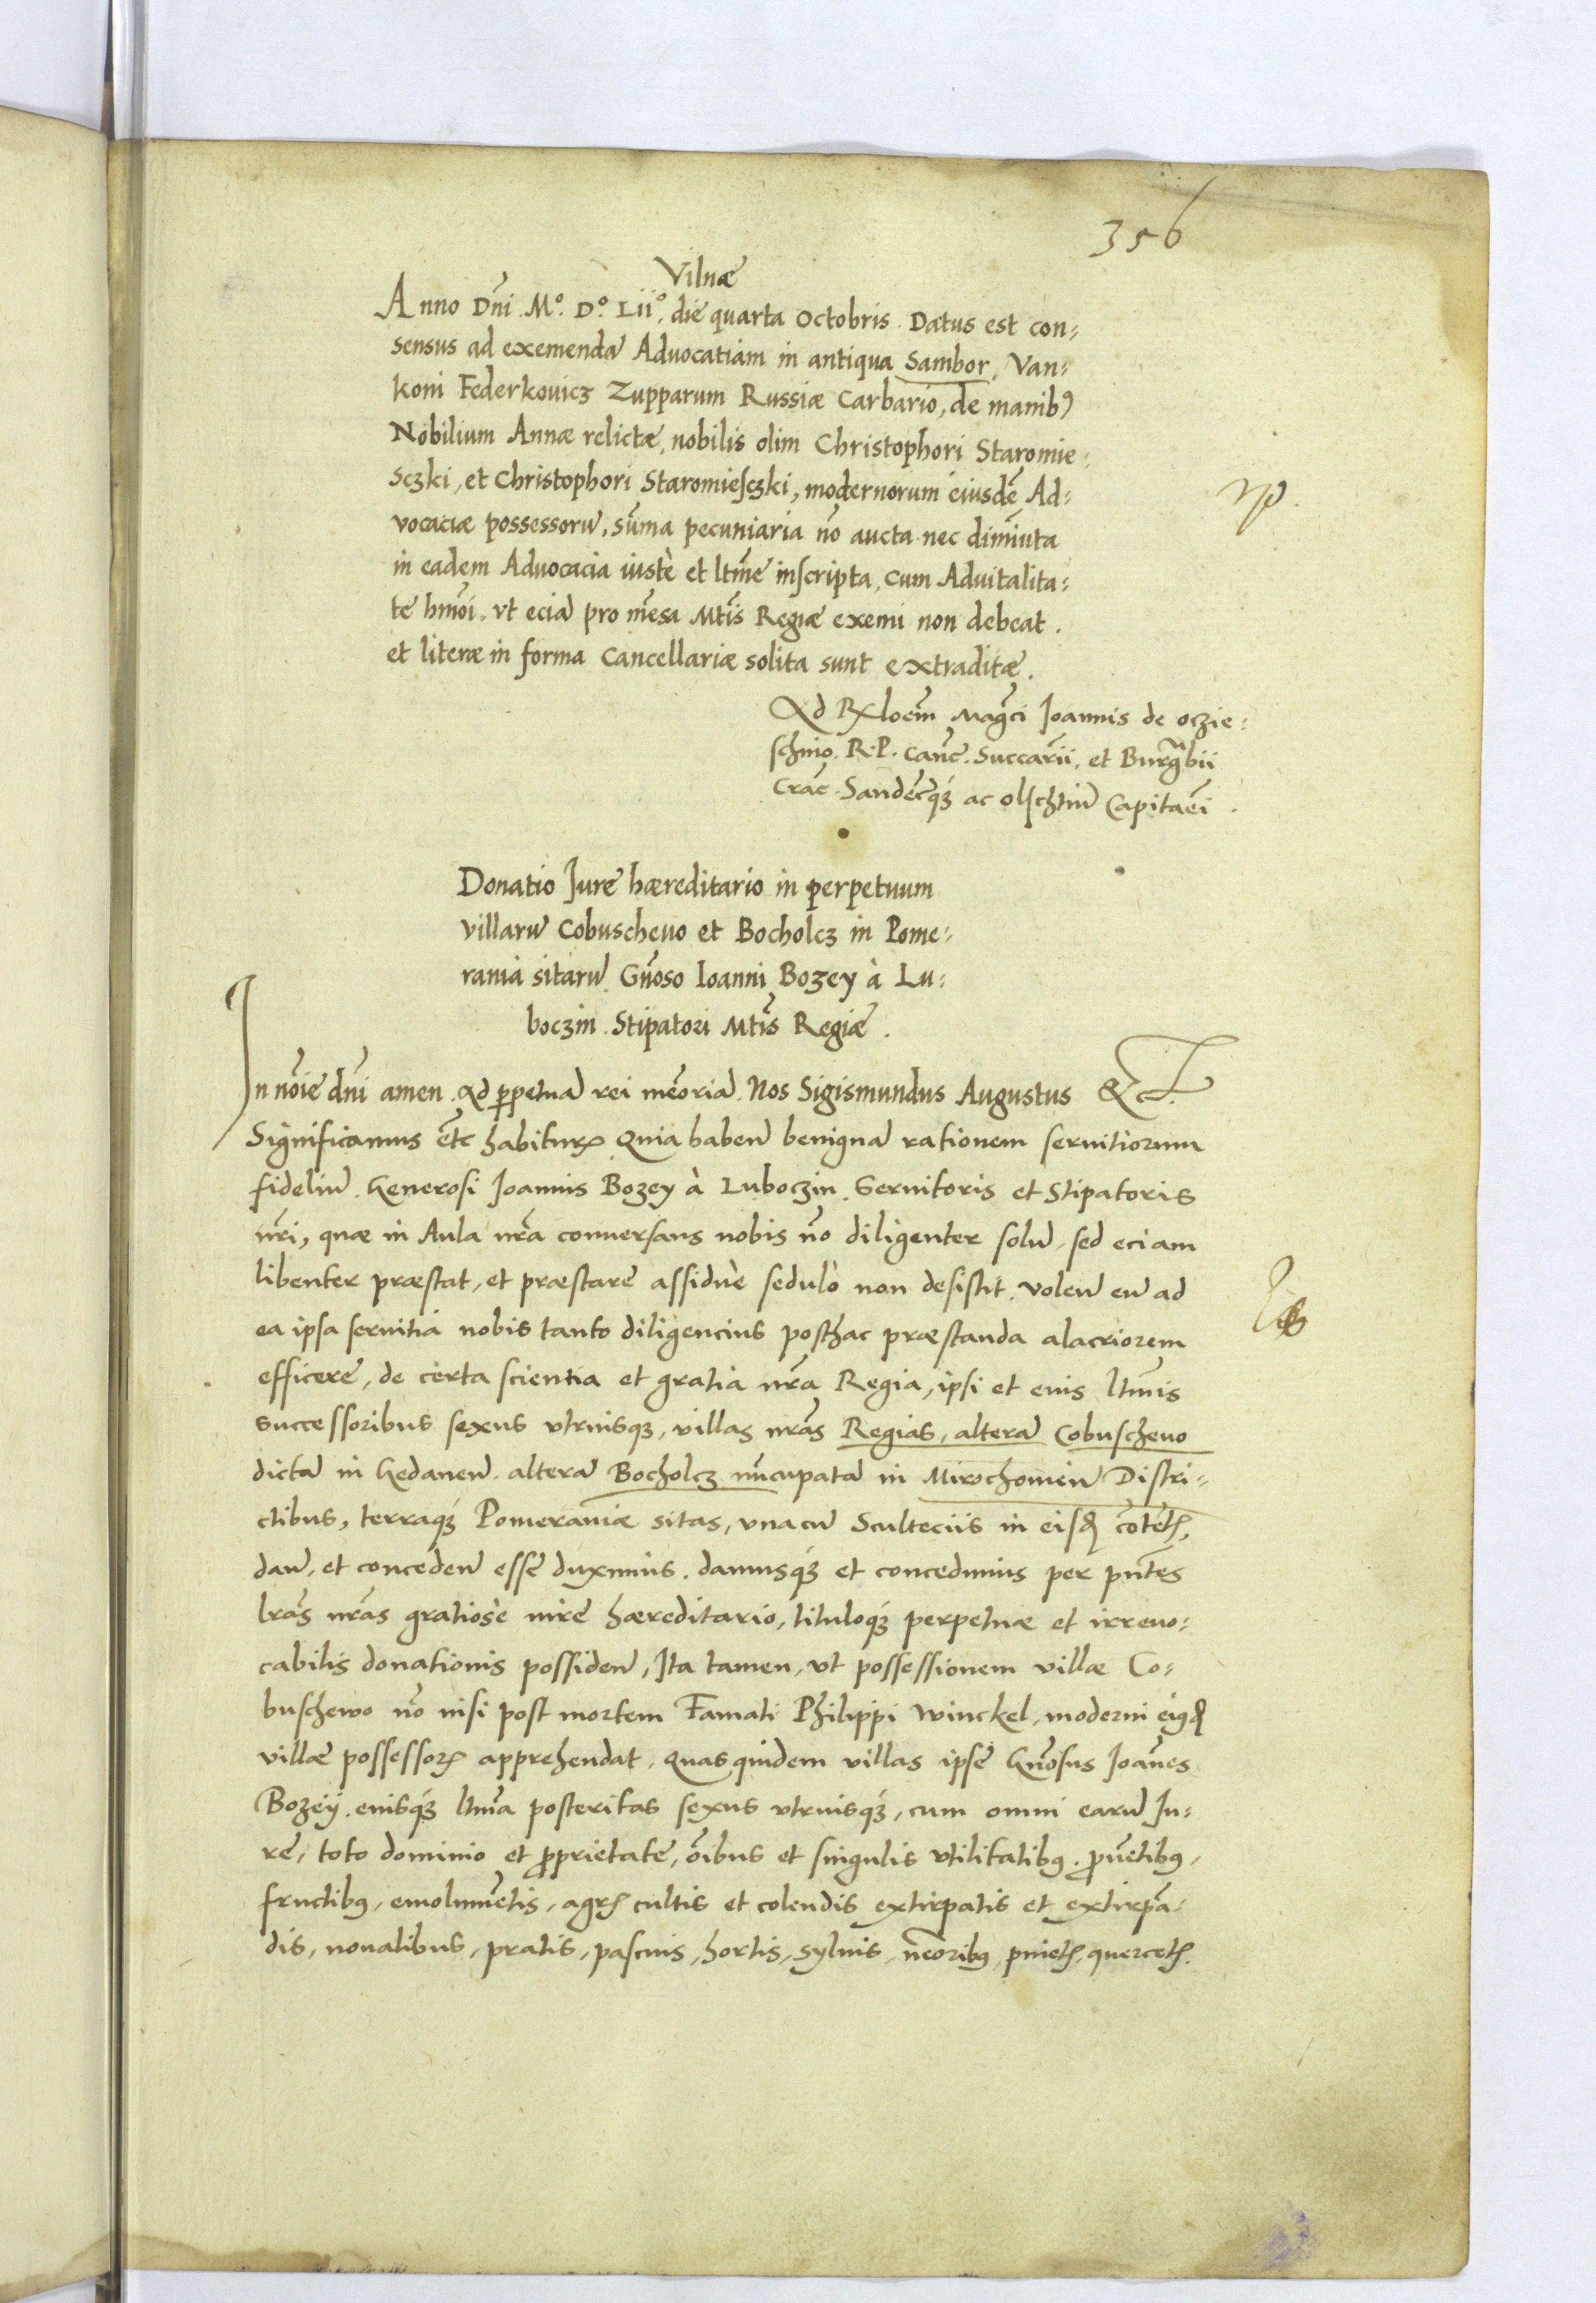 356
Vilnæ
Anno Dñi. Mº. Dº. Liiº. die quarta Octobris. Datus est con:
sensus ad exemendã Aduocatiam in antiqua Sambor, Van:
koni Federkouicz Zupparum Russiæ Carbario, de manibꝰ
Nobilium Annæ relictæ, nobilis olim Christophori Staromie:
sczki, et Christophori Staromiesczki, modernorum eiusdẽ Ad:
vocaciæ possessorũ, sũma pecuniaria nõ aucta nec diminuta
in eadem Aduocacia iustè et ltñe inscripta, cum Aduitalita:
te hmõi. vt eciã pro mẽsa Mtĩs Regiæ exemi non debeat.
et literæ in forma Cancellariæ solita sunt extraditæ.
Ad Rxloẽm Magci Joannis de Oczie:
schino. R. P. Canc. Succarii, et Burgrabii
Crac. Sandecqꝫ ac Olschtiñ Capitaẽi.
Donatio Jure hæreditario in perpetuum
villarũ Cobuscheuo et Bocholcz in Pome:
rania sitarũ Gñoso Ioanni Bozey à Lu:
boczin. Stipatori Mtĩs Regiæ.
In nõie dñi amen. Ad ꝑpetuã rei memoriã. Nos Sigismundus Augustus &c.
Significamus etc habiturꝝ Quia habeñ benignã rationem seruitiorum
fideliũ Generosi Joannis Bozey à Luboczin. Seruitoris et Stipatoris
nri, quæ in Aula nra conuersans nobis nõ diligenter solũ, sed eciam
libenter præstat, et præstare assiduè sedulò non desistit. volen eũ ad
ea ipsa seruitia nobis tanto diligencius posthac præstanda alacriorem
efficere, de certa scientia et gratia nrã Regia, ipsi et euis ltimis
successoribus sexus vtriusqꝫ, villas nrãs Regias, alterã Cobuscheuo
dictã in Gedaneñ. alterã Bocholcz nũcupatã in Mirochouieñ Distri:
ctibus, terraqꝫ Pomeraniæ sitas, vnacũ Sculteciis in eisdẽ cõtẽtis,
dañ, et concedeñ esse duximus. damusqꝫ et concedimus per pñtes
lrãs nrãs gratiosè iure hæreditario, tituloqꝫ perpetuæ et irreuo:
cabilis donationis possideñ, Ita tamen, vt possessionem villæ Co:
buschewo nõ nisi post mortem Famati Philippi Winckel, moderni eiꝰdẽ
villæ possessorꝭ apprehendat. Quas quidem villas ipse Gñosus Joañes
Bozeij. euisqꝫ ltima posteritas sexus vtriusqꝫ, cum omni earũ Ju:
re, toto dominio et ꝓprietate, õibus et singulis vtilitatibꝰ. ꝓuẽtibꝰ,
fructibꝰ, emolumẽtis, agrꝭ cultis et colendis extirpatis et extirpã:
dis, noualibus, pratis, pascuis, hortis, syluis, nẽoribꝰ, pinetꝭ, quercetꝭ.